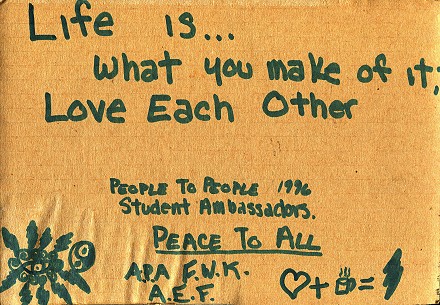 Life is...
what you make of it;
Love Each Other
PEOPLE TO PEOPLE 1996
Student Ambassadors.
PEACE TO ALL
A.P.A F.W.K.
A.E.F.